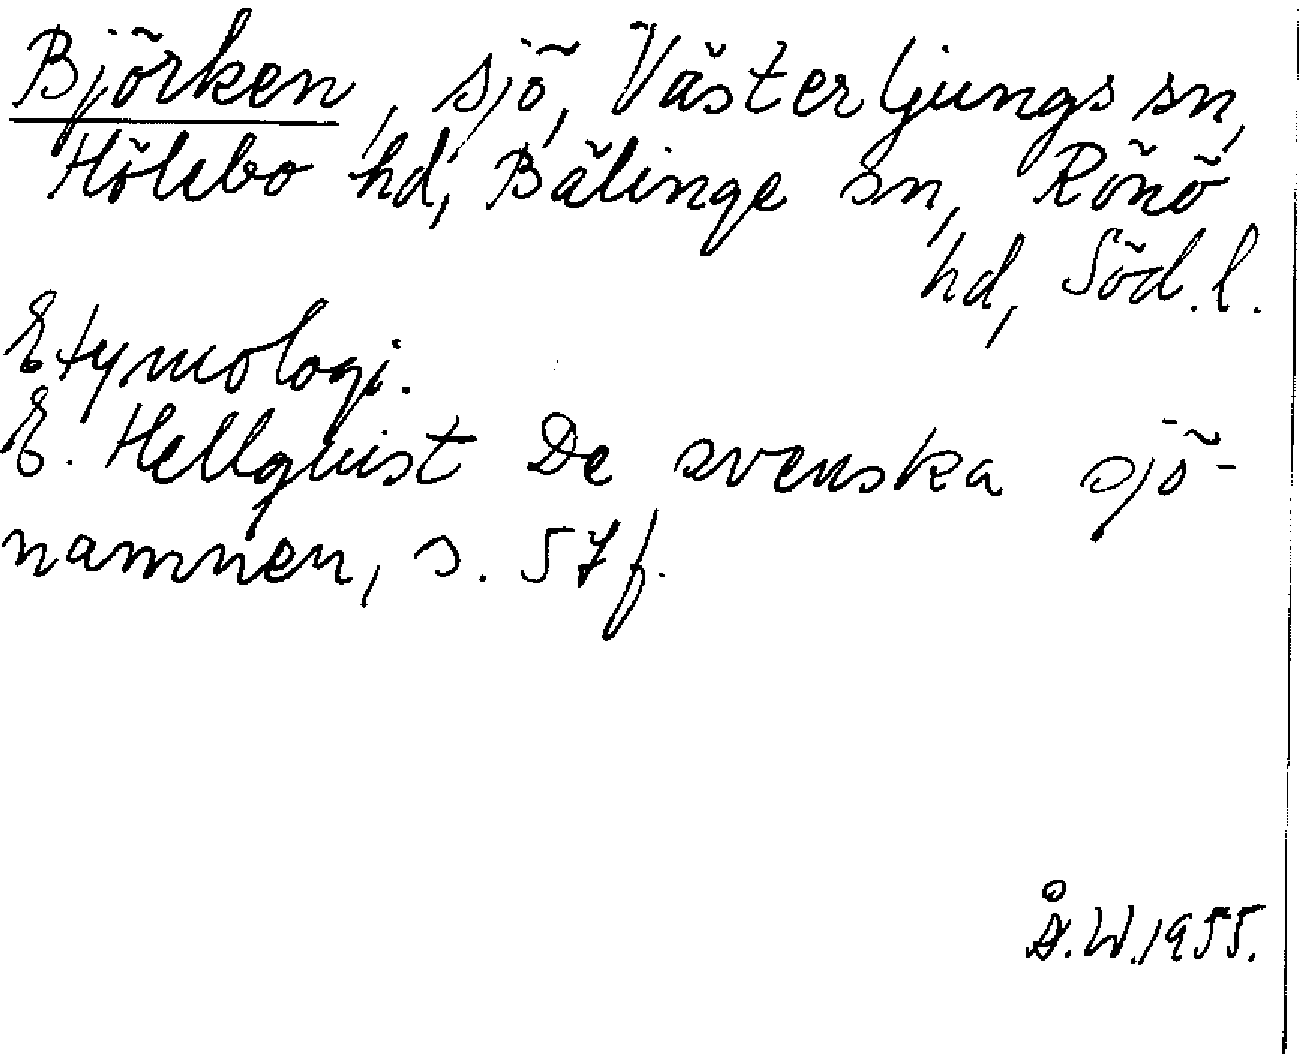 Björken, sjö, Västerljungs sn,
Hölebo hd, Bälinge sn, Rönö
hd, Söd.l.
Etymologi.
E. Hellquist De svenska sjö-
namnen, s. 57 f.
Å.W.1955.